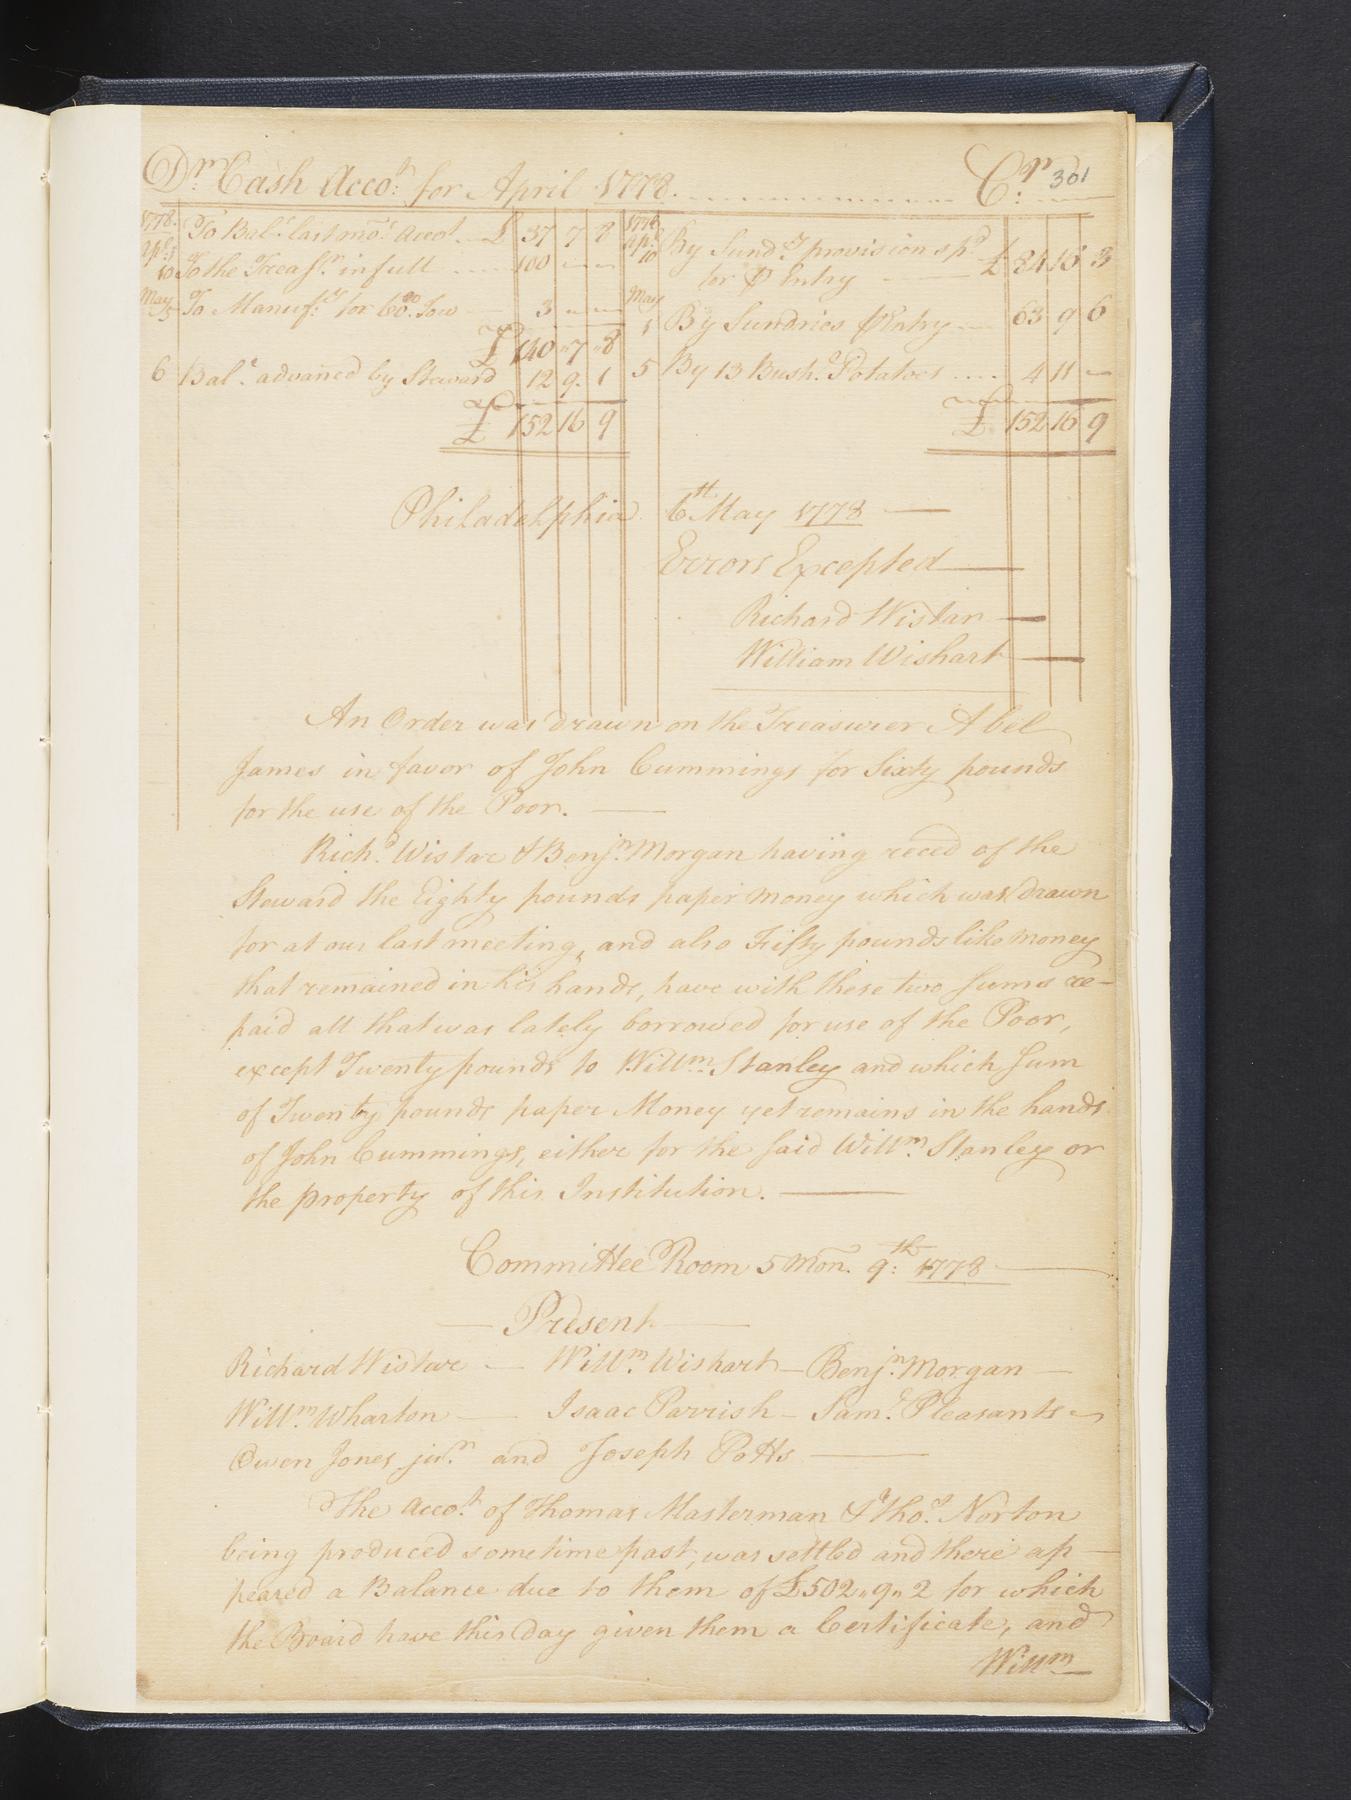 Dr. Cash Accot. for April 1778. Cr. 301
1778. To Bale. last mos. Accot. £ 37 7 8
Apl. 10 To the Treasr. in full 100 — —
May 5 To Manufs. for 60 Tow 3 — —
£ 140 " 7 " 8
6 Bale. advanced by Steward 12 9. 1
£ 152 16 9
1778 Apl. 10 By Sunds. provisions pd.
for ⅌ Entry — £ 84 16 3
May 1 By Sundries ⅌ Entry 63 9 6
5 By 13 Bushs. Potatoes .... 4 11 —
£ 152 16 9
Philadelphia 6th May 1778 —
Errors Excepted —
Richard Wistar —
William Wishart —
An Order was drawn on the Treasurer Abel
James in favor of John Cummings for Sixty pounds
for the use of the Poor. —
Richd. Wistar & Benjn. Morgan having reced of the
Steward the Eighty pounds paper money which was drawn
for at our last meeting, and also Fifty pounds like money
that remained in his hands, have with these two Sums re-
paid all that was lately borrowed for use of the Poor,
except Twenty pounds to Willm. Stanley and which Sum
of Twenty pounds paper Money yet remains in the hands
of John Cummings, either for the said Willm. Stanley or
the property of this Institution. —
Committee Room 5 Mon. 9th: 1778 —
— Present —
Richard Wistar — Willm. Wishart — Benjn. Morgan —
Willm. Wharton — Isaac Parrish — Saml. Pleasants
Owen Jones junr. and Joseph Potts —
The Accot. of Thomas Masterman & Thos. Norton
being produced sometime past, was settled and there ap-
peared a Balance due to them of £502 " 9 " 2 for which
the Board have this Day given them a Certificate, and
Willm